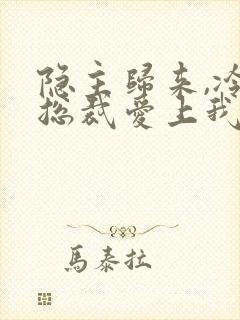 隐主歸来,冷
总裁愛上我
馬泰拉